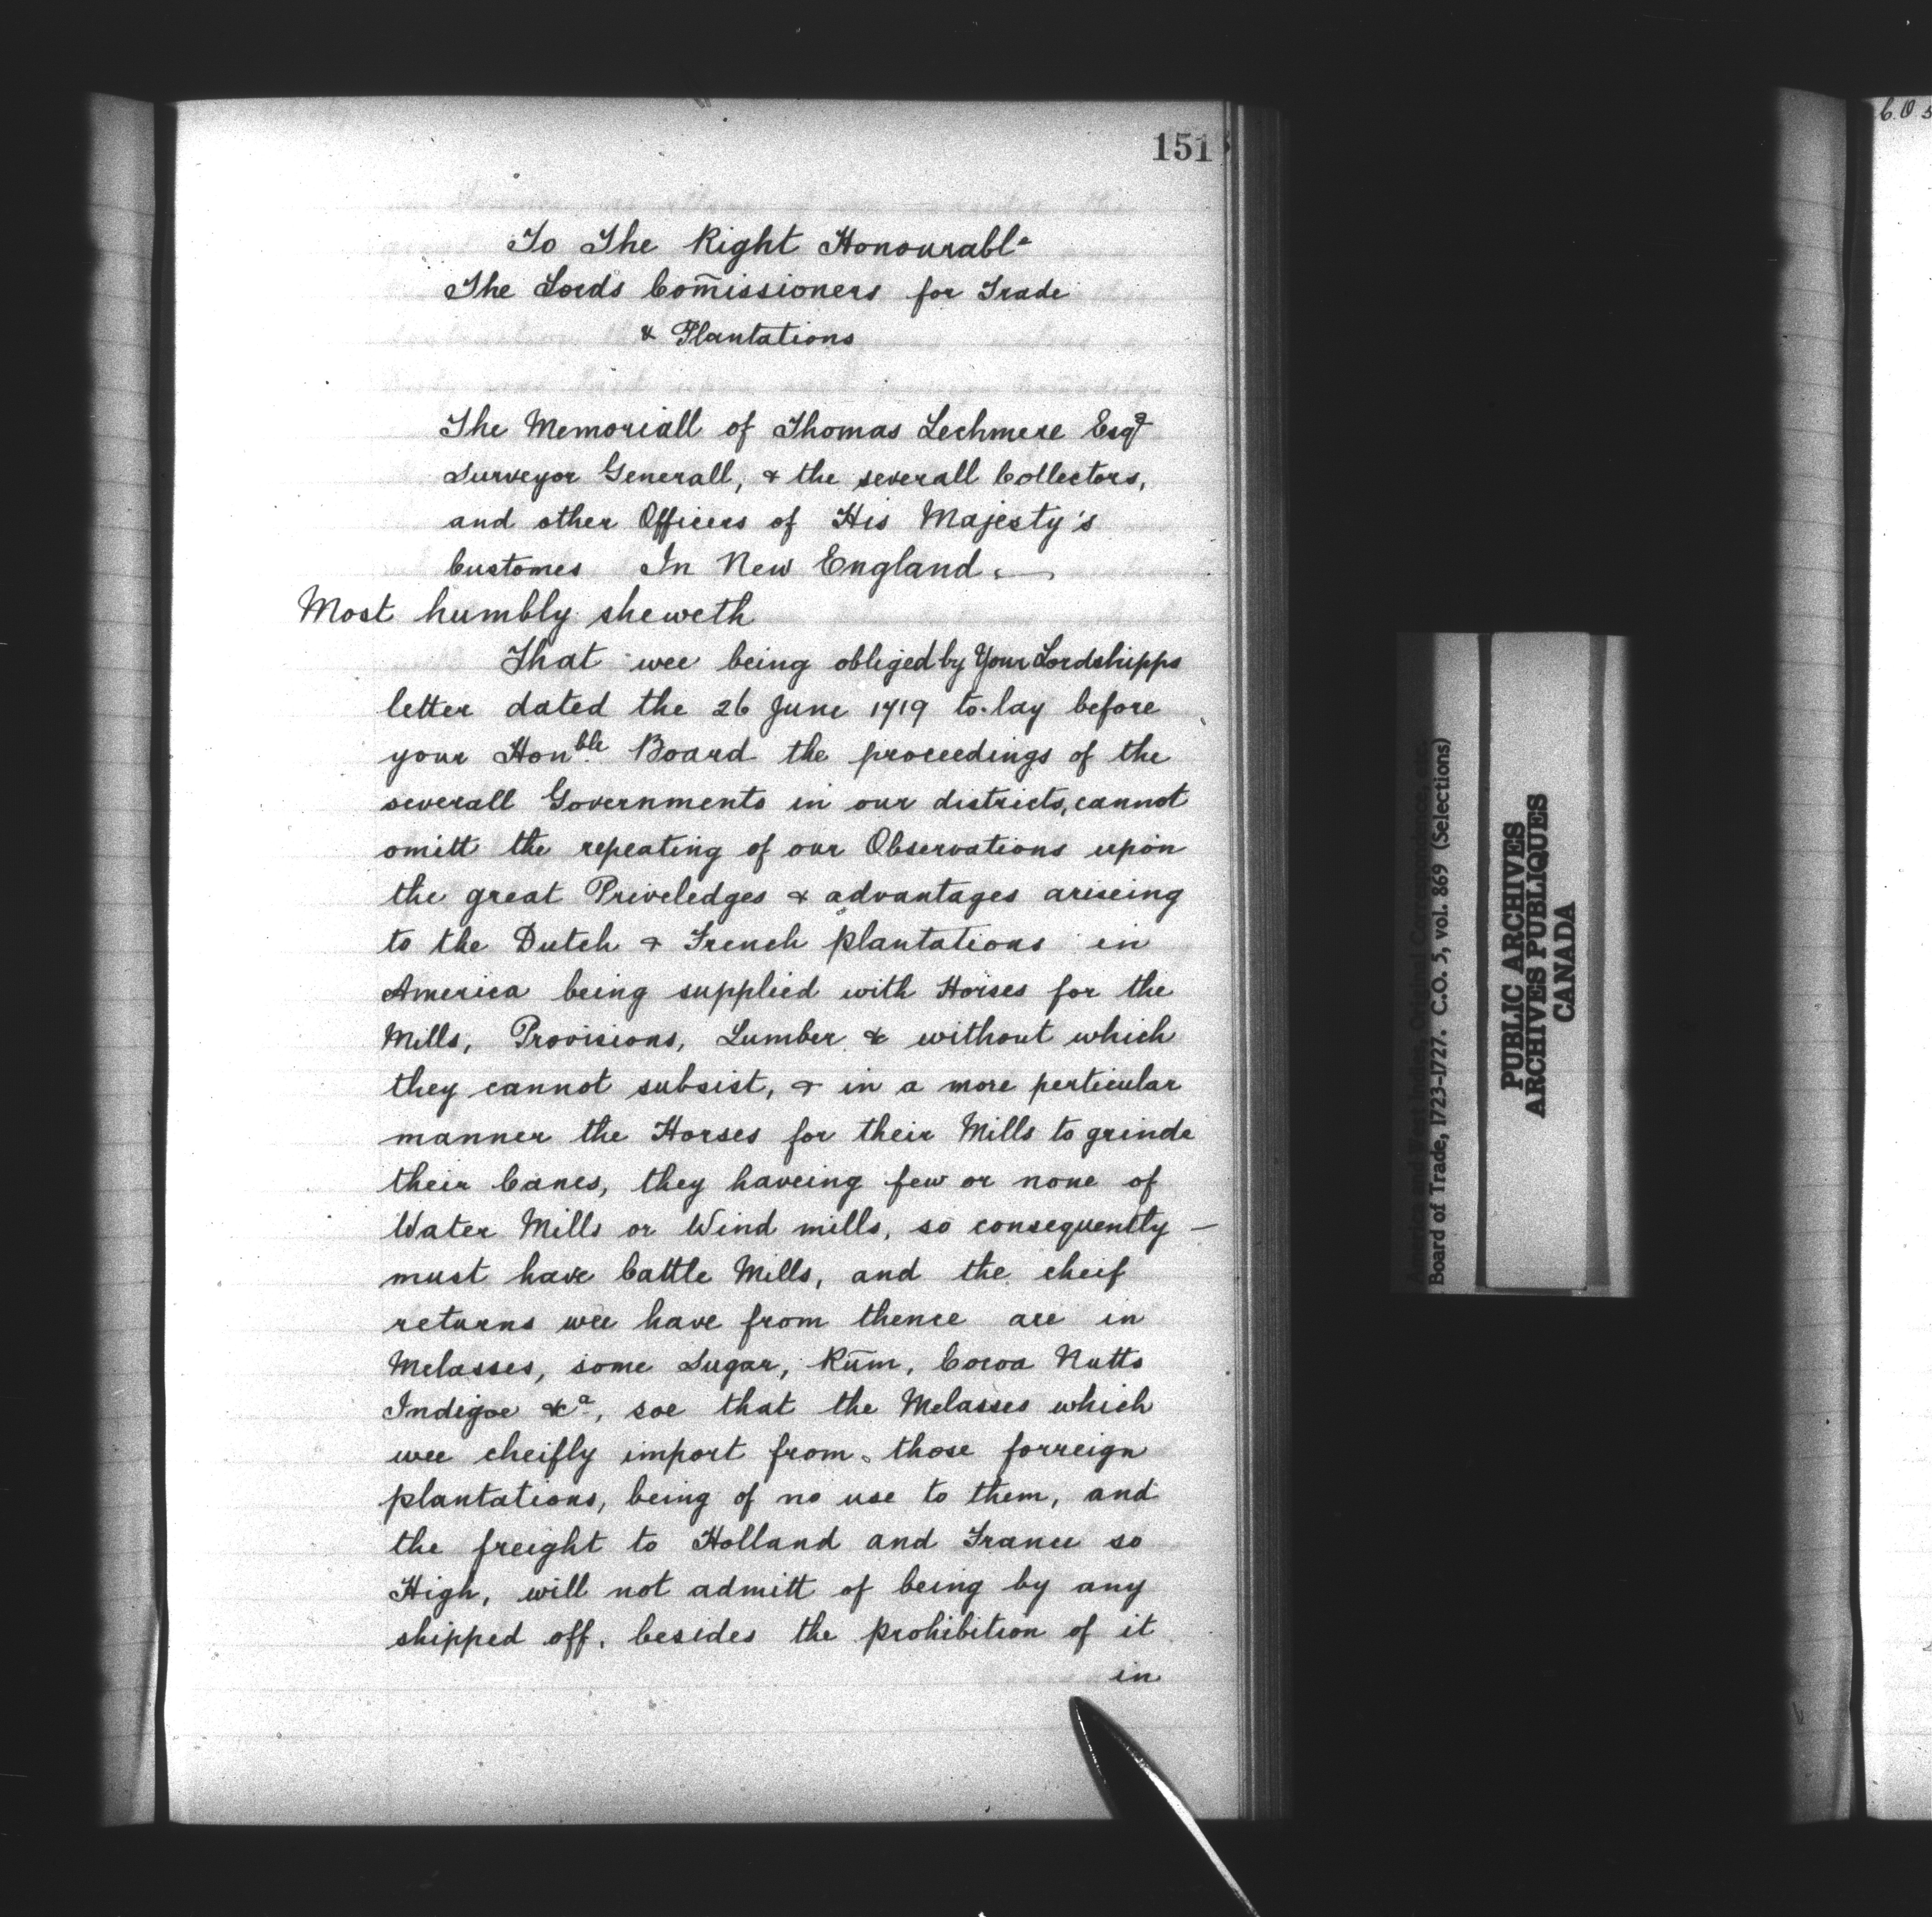 151
To The Right Honourable
The Lords Com̄issioners for Trade
& Plantations
The Memoriall of Thomas Lechmere Esqr
Surveyor Generall, & the severall Collectors,
and other Officers of His Majesty's
Customes In New England.
Most humbly sheweth
That wee being obliged by Your Lordshipps
letter dated the 26 June 1719 to lay before
your Honble Board the proceedings of the
severall Governments in our districts, cannot
omitt the repeating of our Observations upon
the great Priveledges & advantages ariseing
to the Dutch & French plantations in
America being supplied with Horses for the
Mills, Provisions, Lumber & without which
they cannot subsist, & in a more perticular
manner the Horses for their Mills to grinde
their Canes, they haveing few or none of
Water Mills or Wind mills, so consequently —
must have Cattle Mills, and the cheif
returns wee have from thence are in
Melasses, some Sugar, Rum, Cocoa Nutts
Indigoe &ca, soe that the Melasses which
wee cheifly import from those forreign
plantations, being of no use to them, and
the freight to Holland and France so
High, will not admitt of being by any
shipped off, besides the prohibition of it
in
Board of Trade, 1723-1727. C.O. 5, vol. 869 (Selections)
PUBLIC ARCHIVES
ARCHIVES PUBLIQUES
CANADA
C.O 5